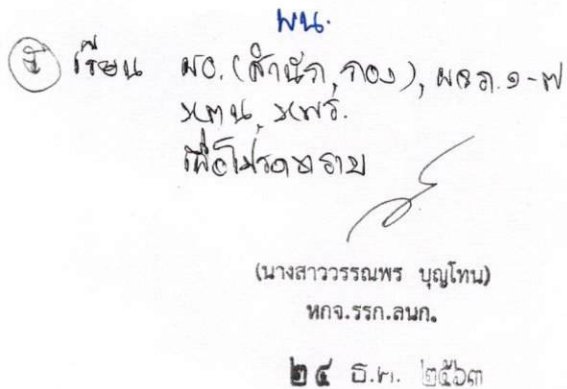 พน.
เรียน ผอ.(สำนัก,กอง), ผอภ.๑-๗
หตน, หพร.
เพื่อโปรดทราบ
(นางสาววรรณพร บุญโทน)
หกจ.รรก.ลนก.
๒๔ ธ.ค. ๒๕๖๓